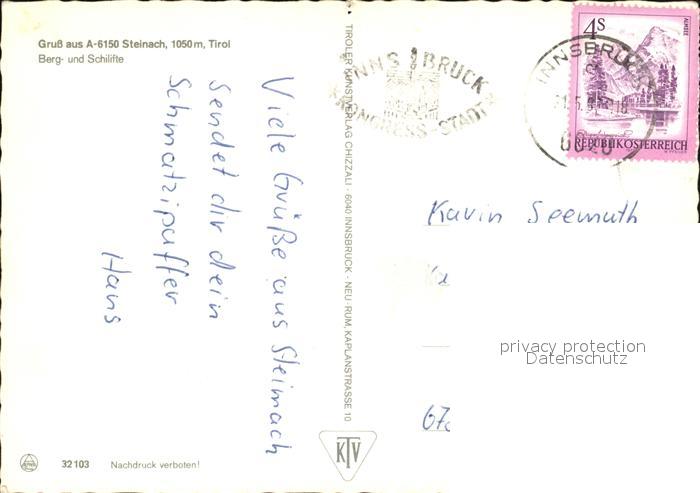 Gruß aus A-6150 Steinach, 1050 m, Tirol
Berg- und Schilifte
Viele Grüße aus Steinach
sendet dir dein
Schmatzipuffer
Hans
TIROLER KUNSTVERLAG CHIZZALI · 6040 INNSBRUCK · NEU-RUM, KAPLANSTRASSE 10
INNSBRUCK
KONGRESS-STADT
INNSBRUCK
6020
4S
ALMSEE
REPUBLIK ÖSTERREICH
Karin Seemuth
67
privacy protection
Datenschutz
KTV
32103 Nachdruck verboten!